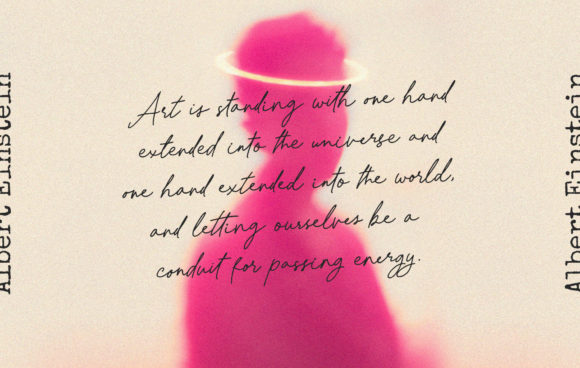 Albert Einstein
Art is standing with one hand
extended into the universe and
one hand extended into the world,
and letting ourselves be a
conduit for passing energy.
Albert Einstein